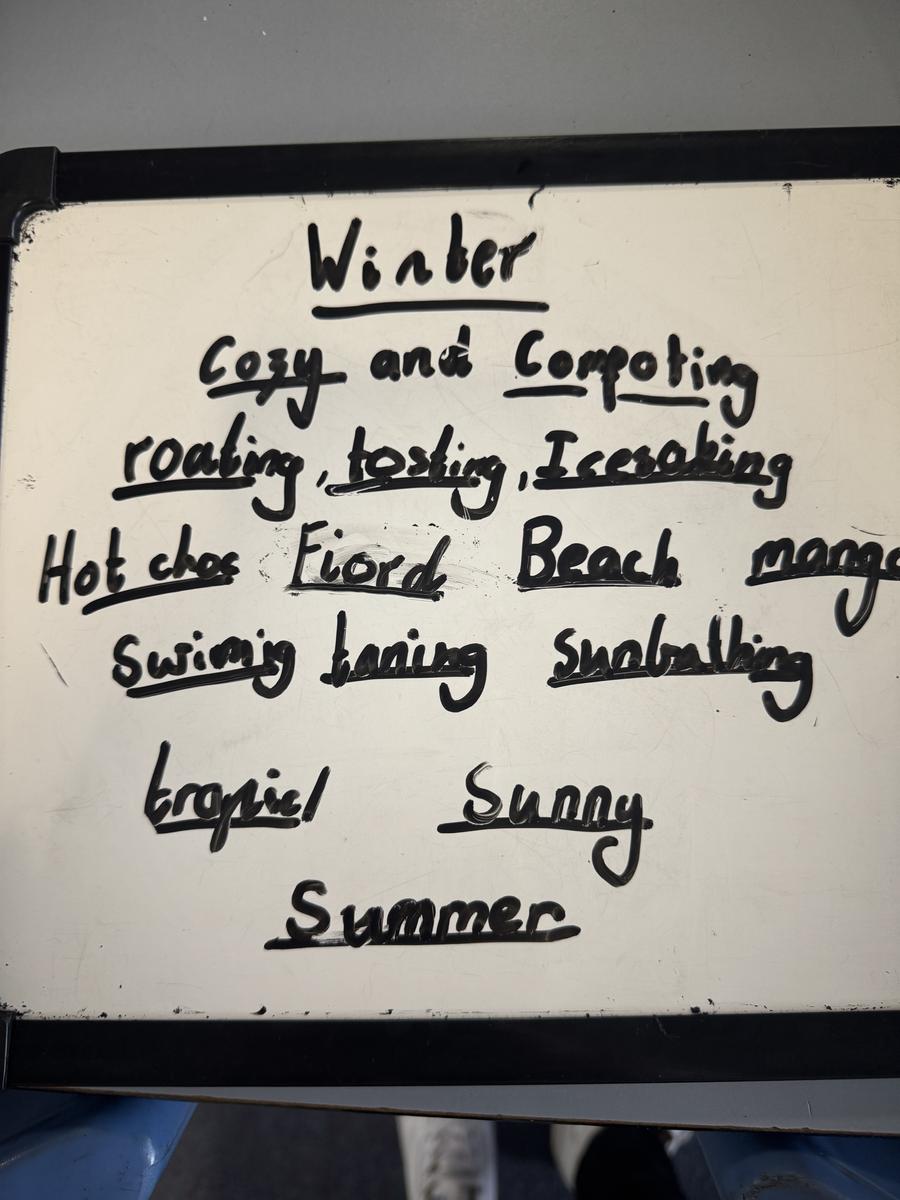 Winter
Cozy and Compoting
roating, tosting, Icesaking
Hot choc Fiord Beach mango
Swimig taning sunbathing
tropicl Sunny
Summer